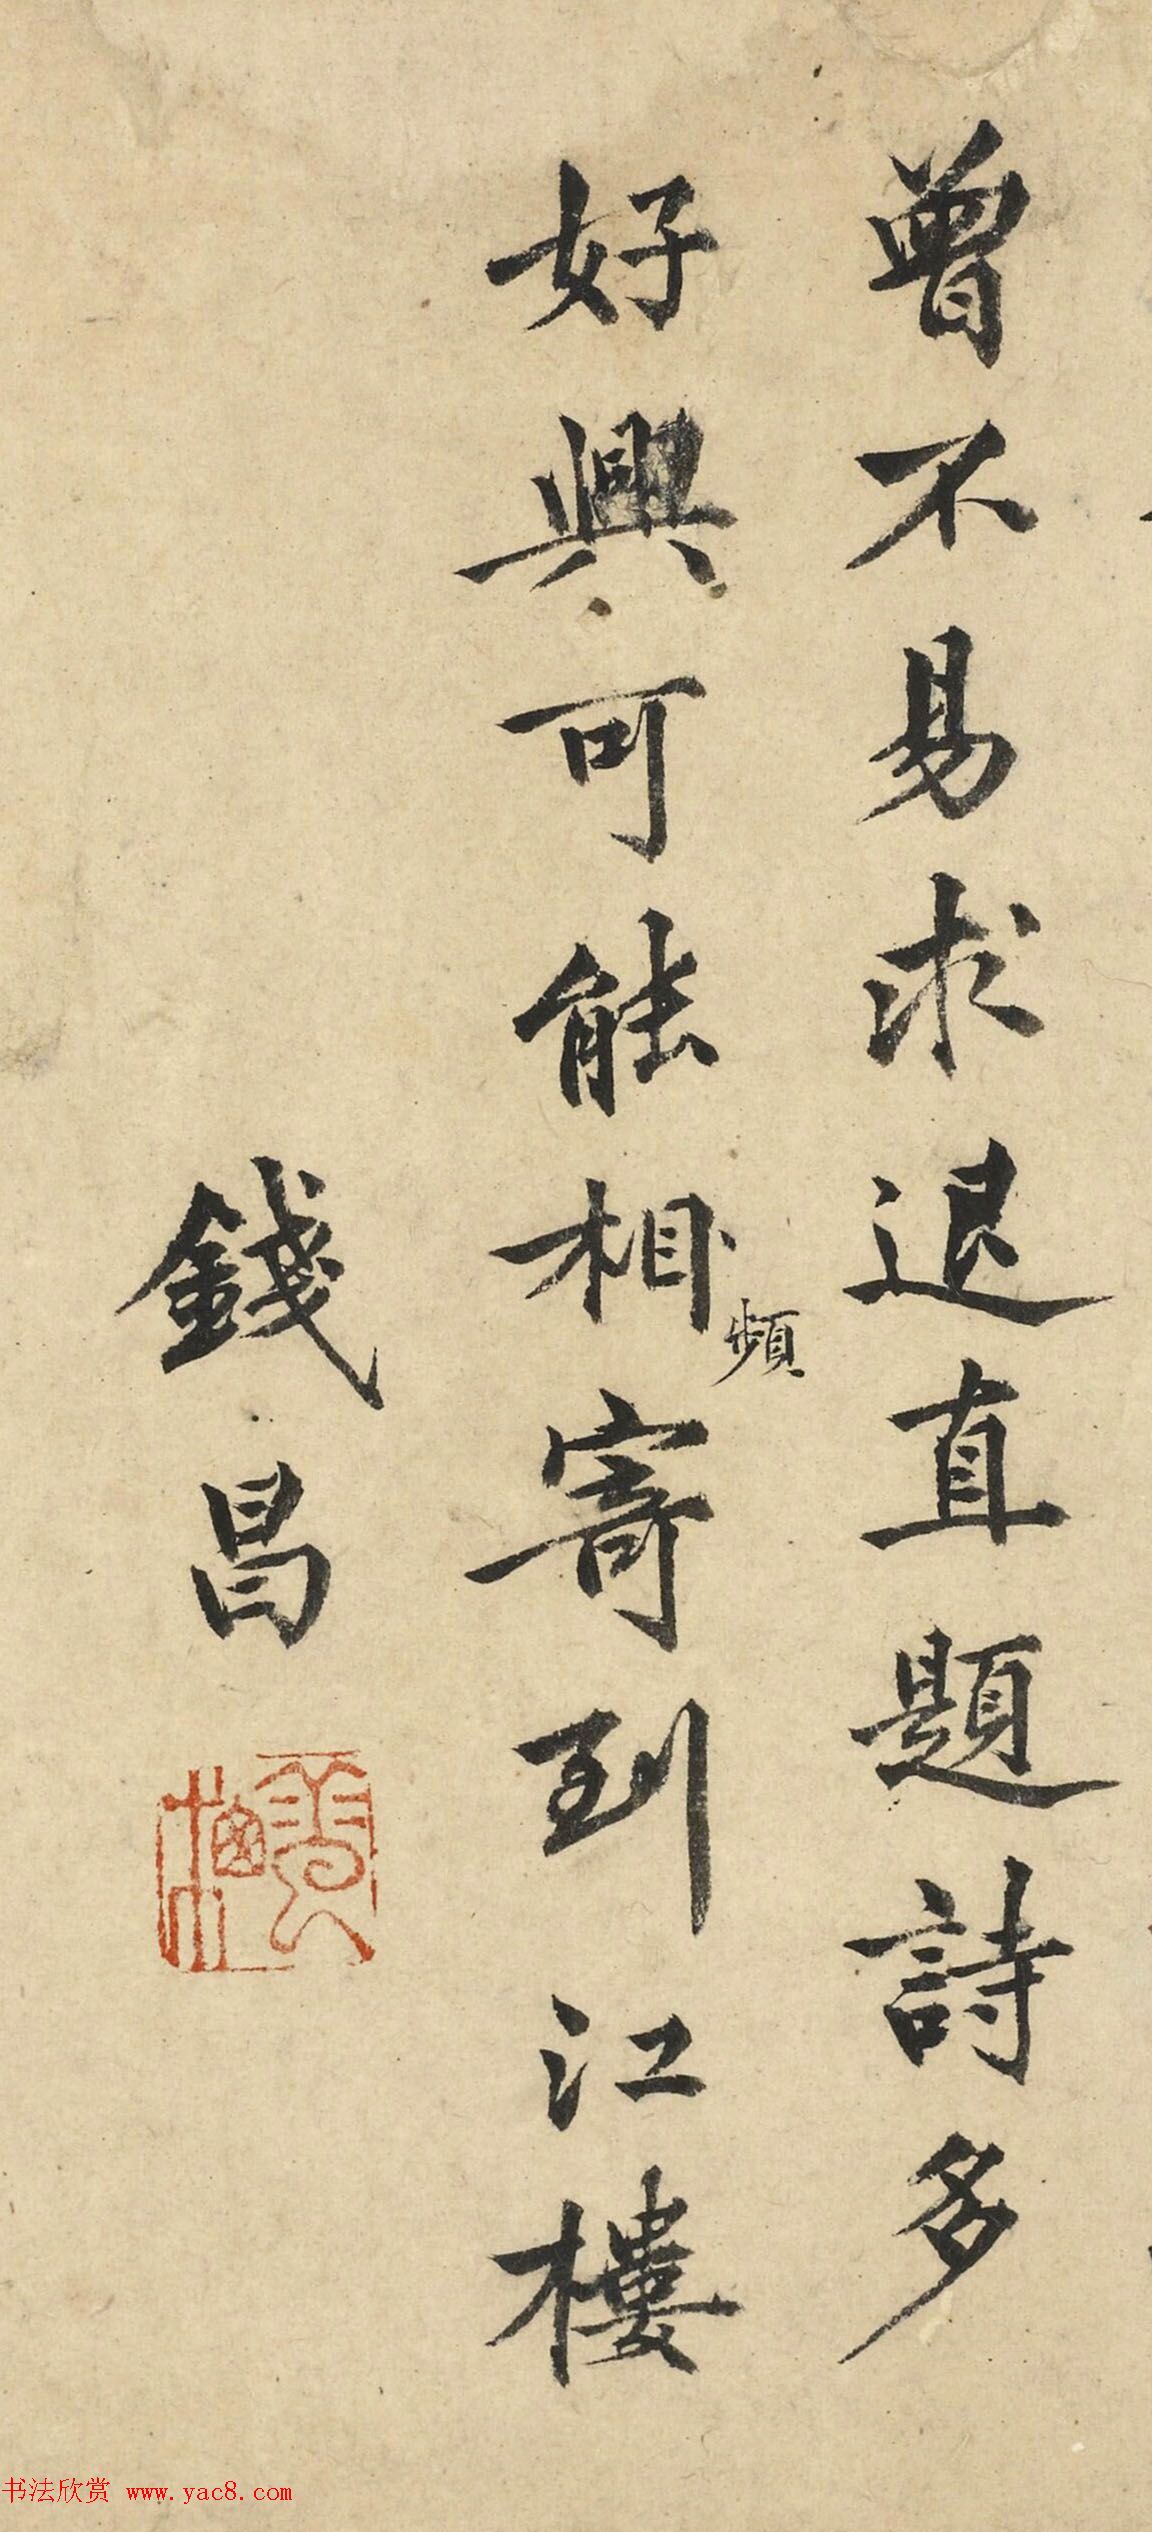 曾不易求退直題詩多
好興可能相寄到江樓
頻
錢昌
书法欣赏 www.yac8.com